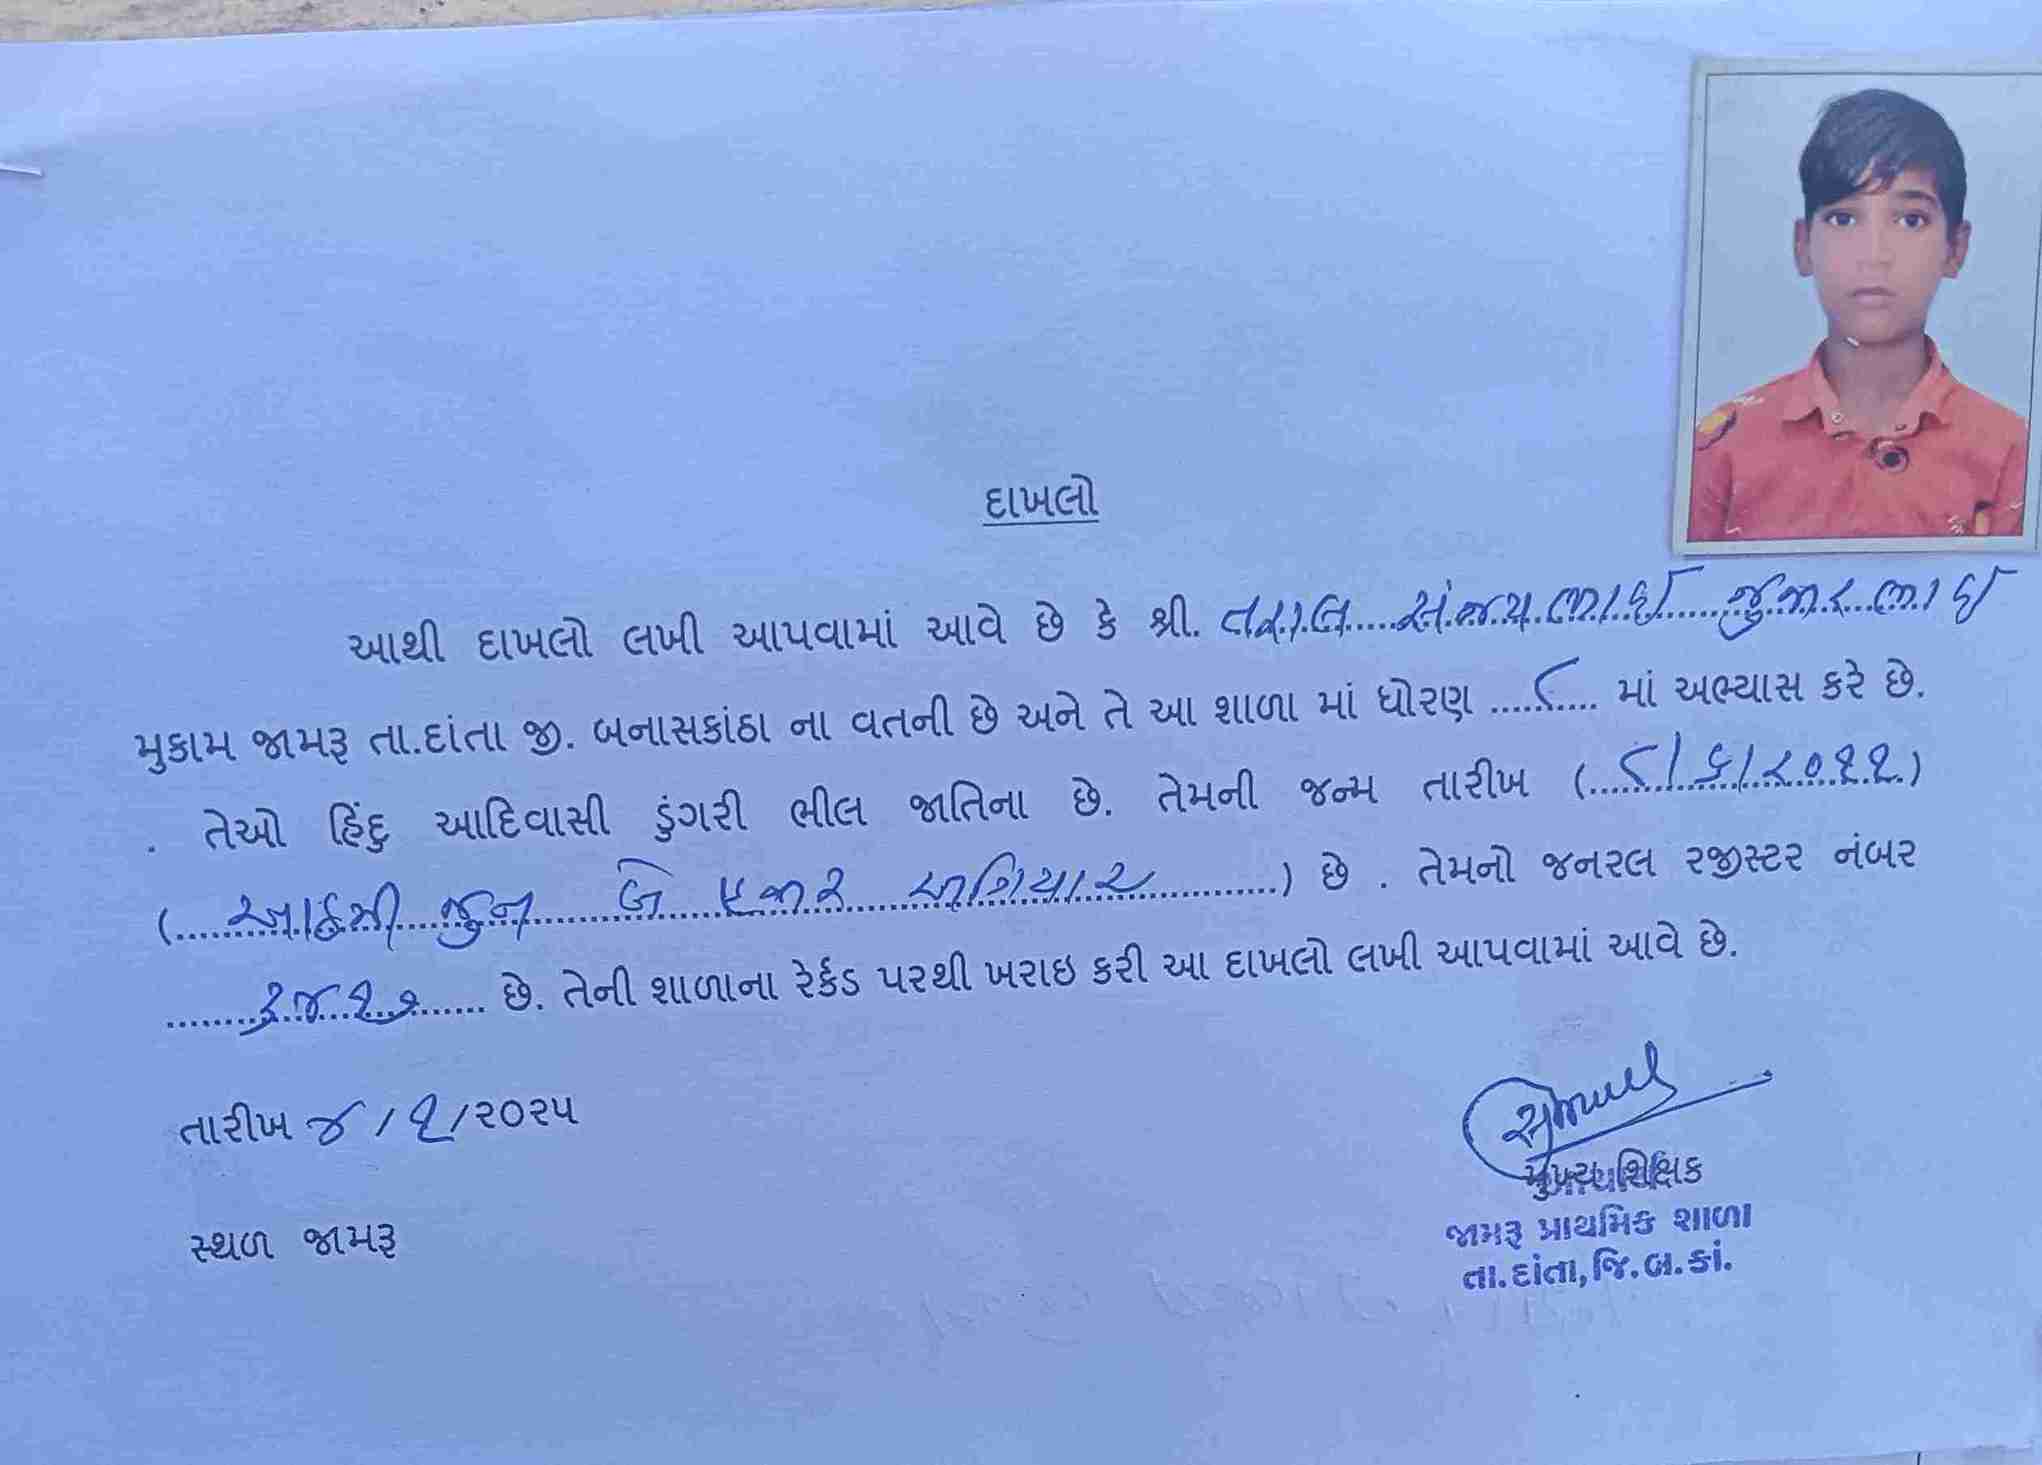 દાખલો
આથી દાખલો લખી આપવામાં આવે છે કે શ્રી. તરાલ સંજયભાઈ જુજારભાઈ
મુકામ જામરૂ તા.દાંતા જી. બનાસકાંઠા ના વતની છે અને તે આ શાળા માં ધોરણ ૮ માં અભ્યાસ કરે છે.
. તેઓ હિંદુ આદિવાસી ડુંગરી ભીલ જાતિના છે. તેમની જન્મ તારીખ (૮/૬/૨૦૧૧)
(આઠમી જુન બે હજાર અગિયાર) છે . તેમનો જનરલ રજીસ્ટર નંબર
૧૪૧૭ છે. તેની શાળાના રેર્કડ પરથી ખરાઇ કરી આ દાખલો લખી આપવામાં આવે છે.
તારીખ ૪/૧/૨૦૨૫
સ્થળ જામરૂ
મુખ્ય શિક્ષક
જામરૂ પ્રાથમિક શાળા
તા.દાંતા, જિ.બ.કાં.